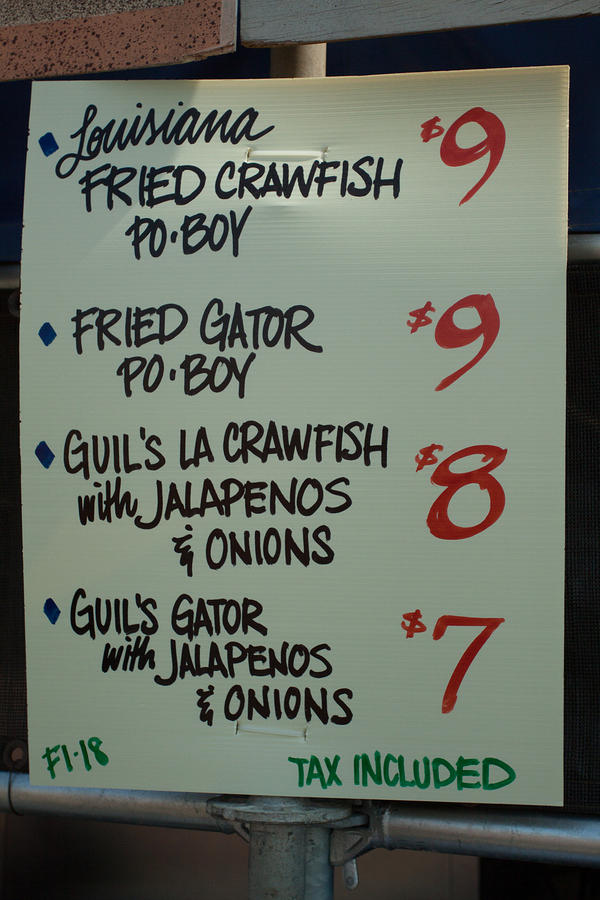 Louisiana $9
FRIED CRAWFISH
PO·BOY
FRIED GATOR $9
PO·BOY
GUIL'S LA CRAWFISH $8
with JALAPENOS
& ONIONS
GUIL'S GATOR $7
with JALAPENOS
& ONIONS
F1-18 TAX INCLUDED